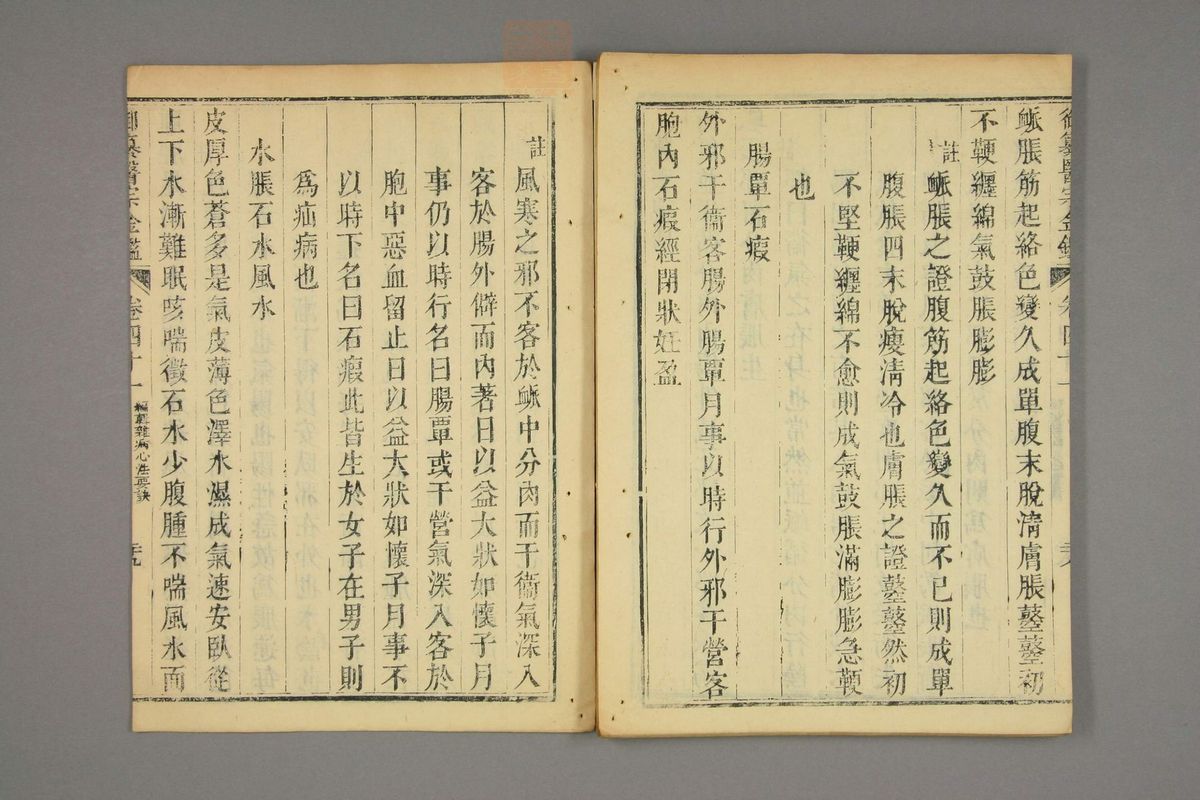 御纂醫宗金鑑 卷四十一
脈脹筋起絡色變久成單腹末脫清膚脹鼞鼞初
不鞕纏綿氣鼓脹膨膨
註 脈脹之證腹筋起絡色變久而不已則成單
腹脹四末脫瘦淸冷也膚脹之證鼞鼞然初
不堅鞕纏綿不愈則成氣鼓脹滿膨膨急鞕
也
腸覃石瘕
外邪干衞客腸外腸覃月事以時行外邪干營客
胞內石瘕經閉狀妊盈
註 風寒之邪不客於脈中分肉而干衞氣深入
客於腸外僻而內著日以益大狀如懷子月
事仍以時行名曰腸覃或干營氣深入客於
胞中惡血留止日以益大狀如懷子月事不
以時下名曰石瘕此皆生於女子在男子則
為疝病也
水脹石水風水
皮厚色蒼多是氣皮薄色澤水濕成氣速安臥從
上下水漸難眠咳喘徵石水少腹腫不喘風水面
御纂醫宗金鑑 卷四十一 編輯雜病心法要訣 三九